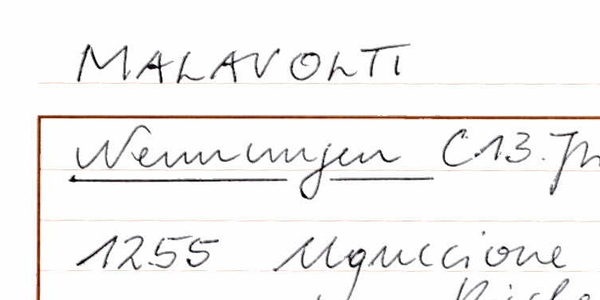 MALAVOLTI
Nennungen C13. Jh
1255 Uguccione